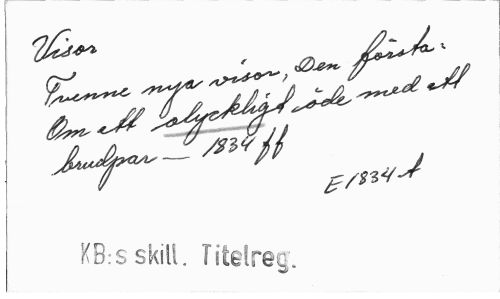 Visor
Tvenne nya visor, Den första:
Om ett olyckligt öde med ett
brudpar — 1834 ff
E 1834 A
KB:s skill. Titelreg.